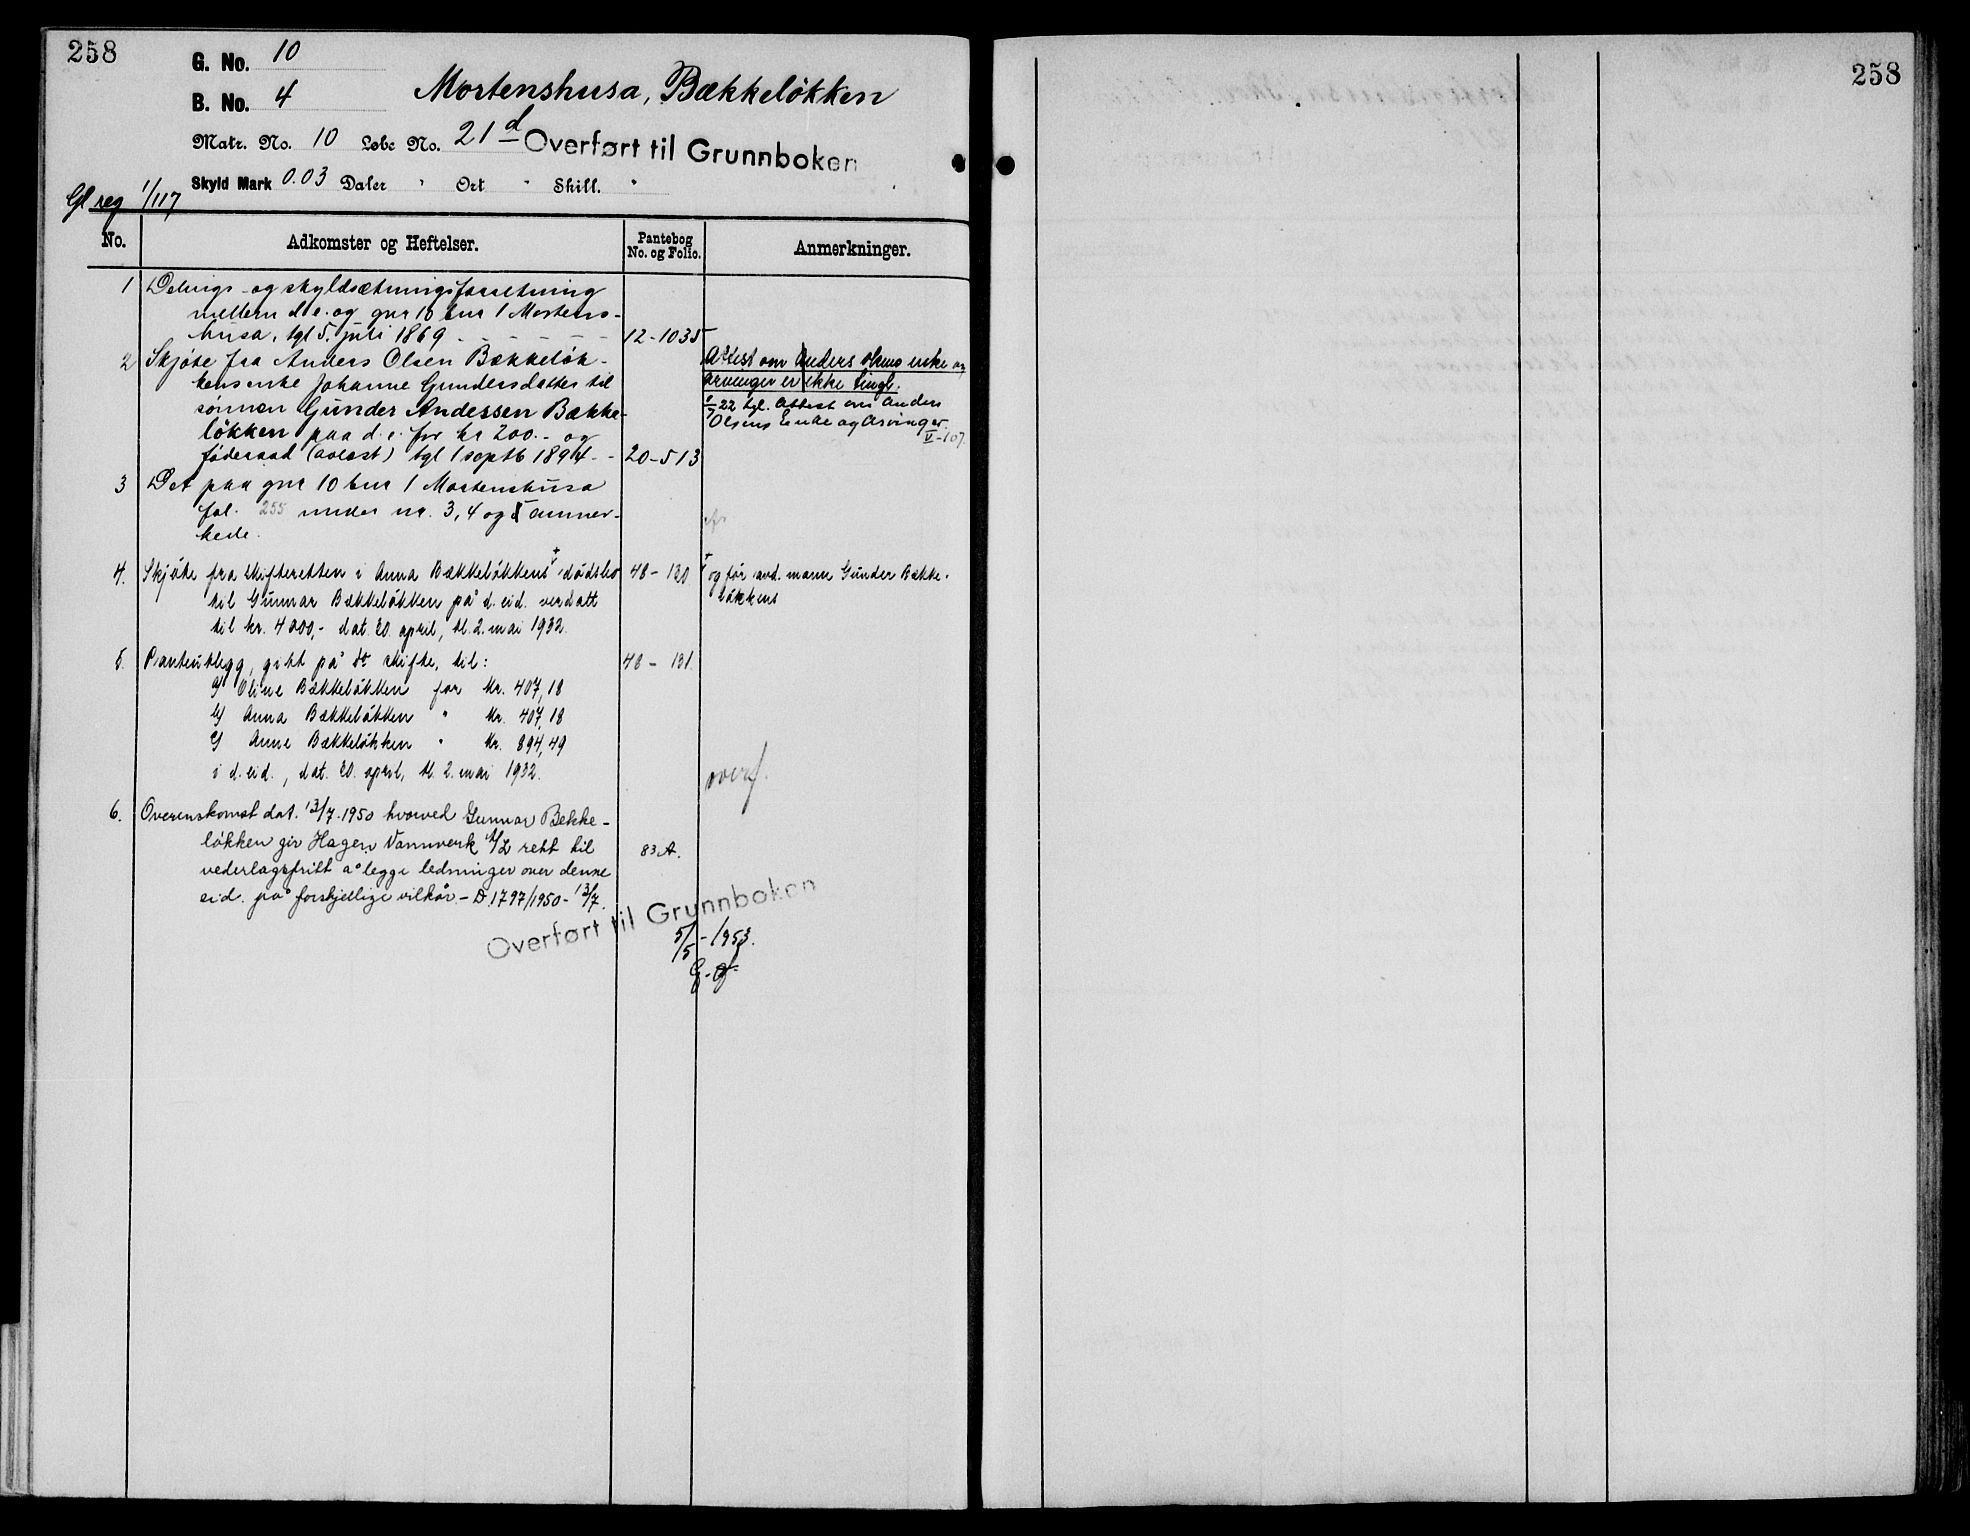 258
G. No. 10
B. No. 4
Mortenshusa, Bækkeløkken
Matr. No. 10 Løbe No. 21 d
Overført til Grunnboken
Skyld Mark 0.03 Daler " Ort " Skill. "
Gl reg 1/117
No. Adkomster og Heftelser. Pantebog No. og Folio. Anmerkninger.
1 Delings- og skyldsætningsforretning
mellem d. e. og gnr 10 bnr 1 Mortens-
husa, tgl 5. juli 1869 12-1035
2 Skjøte fra Anders Olsen Bækkeløk-
kens enke Johanne Gundersdatter til
sønnen Gunder Anderssen Bække-
løkken paa d. e. for kr 200.- og
føderaad (avløst) tgl 1 septb 1894 20-513
Attest om Anders Olsens enke og
arvinger er ikke tingl.
22 tgl. Attest om Anders
Olsens Enke og Arvinger.
V-107.
3 Det paa gnr 10 bnr 1 Mortenshusa
fol. 255 under nr. 3, 4 og 5 anmer-
kede.
4. Skjøte fra skifteretten i Anna Bækkeløkkens + dødsbo 48-130
til Gunnar Bækkeløkken på d. eid. verdsatt
til kr. 4000,- dat. 20. april, tl. 2. mai 1932.
+ og før avd. mann Gunder Bække-
løkkens
5. Panteutlegg, gitt på s. skifte, til: 48-131.
a) Oline Bækkeløkken for kr. 407,18
b) Anna Bækkeløkken " kr. 407,18
c) Anne Bækkeløkken " kr. 894,49
i d. eid., dat. 20. april, tl. 2. mai 1932.
overf.
6. Overenskomst dat. 13/7-1950 hvorved Gunnar Bekke-
løkken gir Hagen Vannverk A/L rett til 83 A.
vederlagsfritt å legge ledninger over denne
eid. på forskjellige vilkår.- D. 1797/1950 - 13/7.
Overført til Grunnboken
5/5-1953.
258